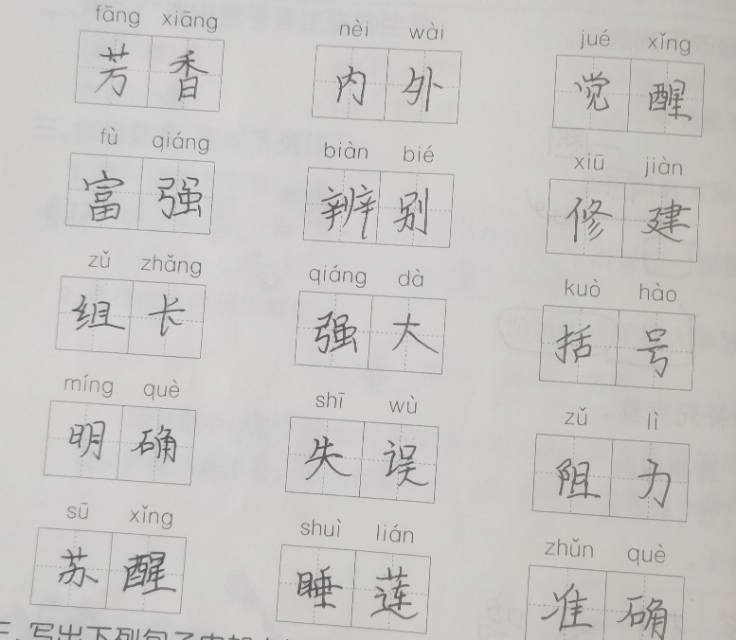 fāng xiāng nèi wài jué xǐng
芳香 内外 觉醒
fù qiáng biàn bié xiū jiàn
富强 辨别 修建
zǔ zhǎng qiáng dà kuò hào
组长 强大 括号
míng què shī wù zǔ lì
明确 失误 阻力
sū xǐng shuì lián zhǔn què
苏醒 睡莲 准确
三、写出下列句子中加